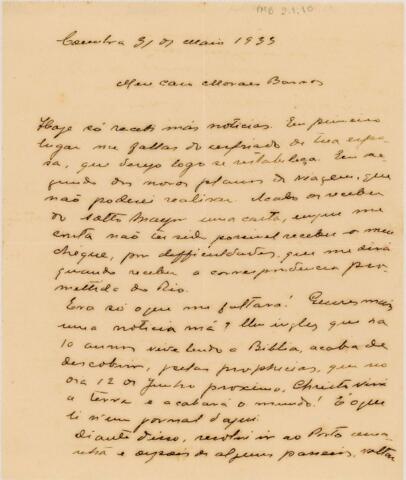 PMB 2.1.10
Coimbra 31 de Maio 1933
Meu caro Moraes Barros
Hoje só recebi más noticias. Em primeiro
lugar me fallas do resfriado de tua espo-
sa, que desejo logo se restabeleça. Em se-
gundo dos novos planos de viagem, que
não poderei realizar. Acabo de receber
do Mayer uma carta, em que me
conta não ter sido possivel receber o meu
cheque, por difficuldades, que me dirá
quando receber a correspondencia pro-
mettida do Rio.
Era só o que me faltava! Queres mais
uma noticia má? Um inglez que ha
10 annos vive lendo a Biblia, acaba de
descobrir, pelas prophecias, que no
dia 12 de Junho proximo, Christo virá
a terra e acabará o mundo! É o que
li n'um jornal d'aqui.
Diante disso, resolvi ir ao Porto ama-
nhã e depois de alguns passeios, voltar